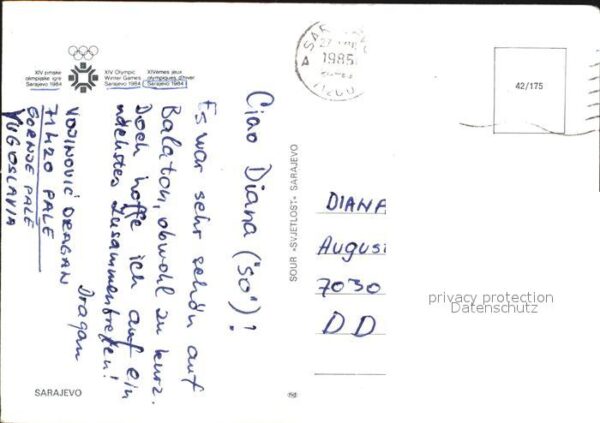 XIV zimske
olimpijske igre
Sarajevo 1984
XIV Olympic
Winter Games
Sarajevo 1984
XIVèmes jeux
olympiques d'hiver
Sarajevo 1984
Ciao Diana ("so")!
Es war sehr schön auf
Balaton, obwohl zu kurz.
Doch hoffe ich auf ein
nächstes Zusammentreffen!
Dragan
VOJINOVIĆ DRAGAN
71420 PALE
GORNJE PALE
YUGOSLAVIA
SARAJEVO
SOUR «SVJETLOST» SARAJEVO
1985
42/175
DIANA
August
7030
DD
privacy protection
Datenschutz